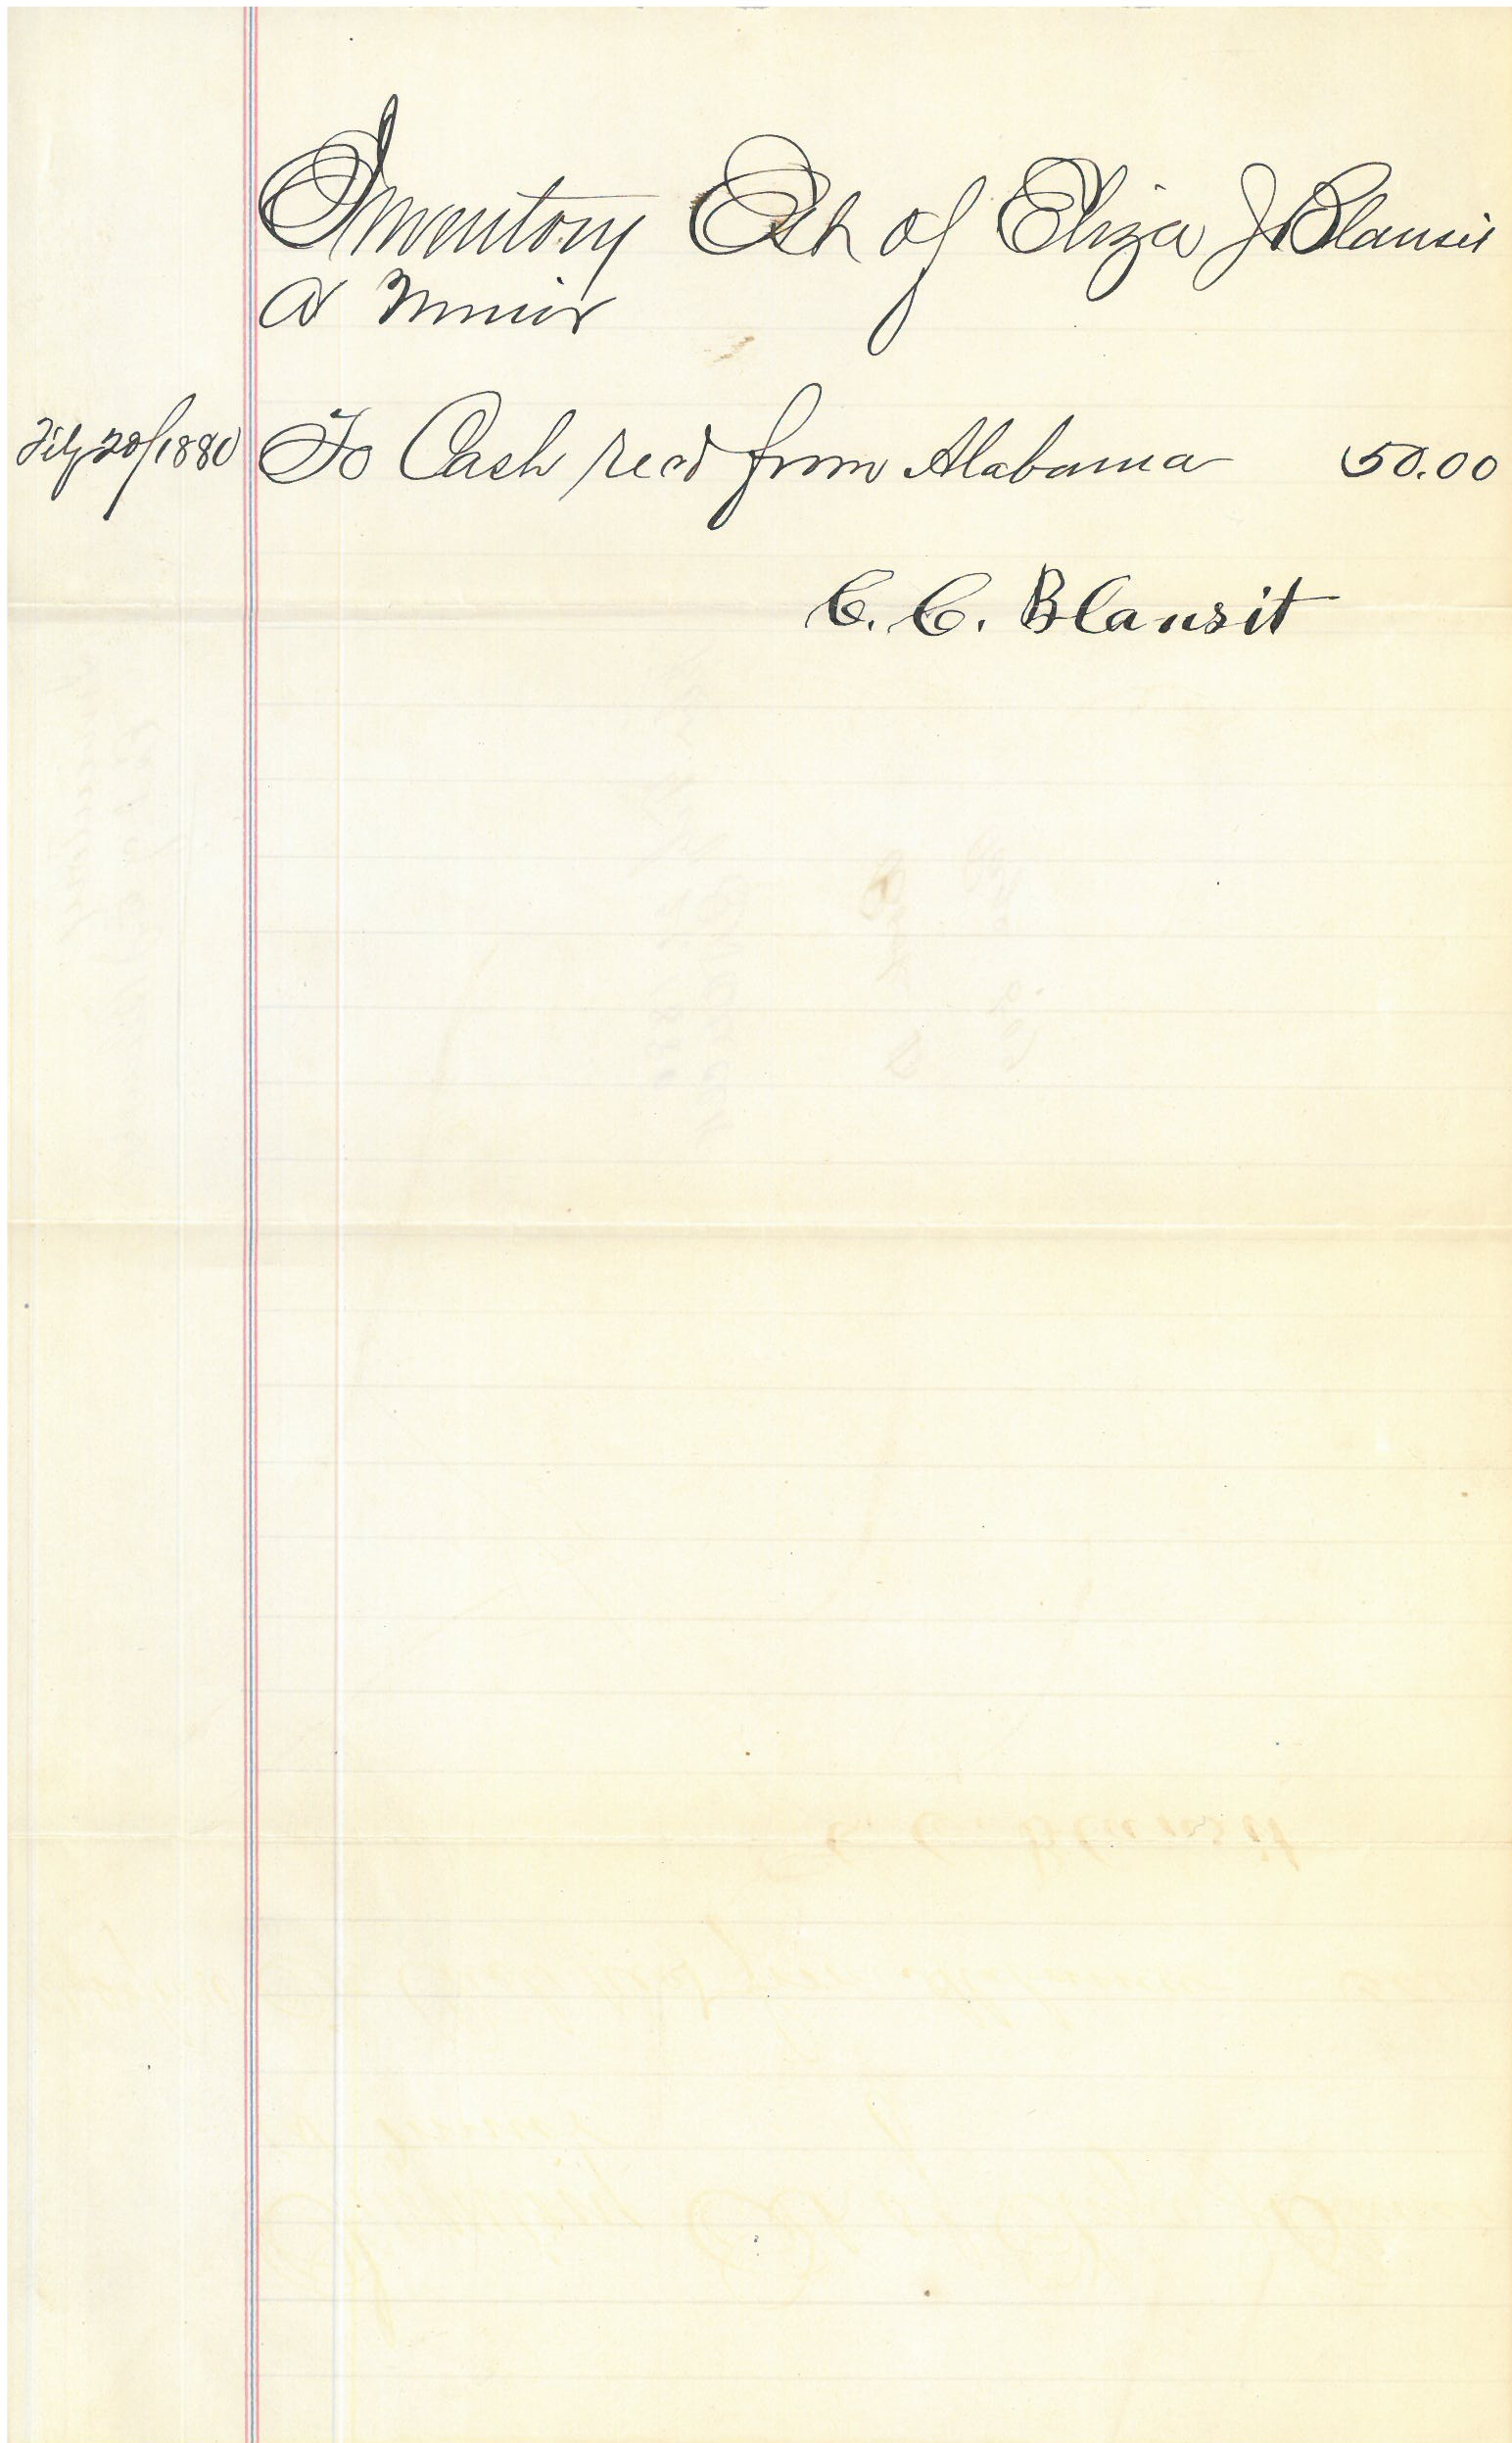 Inventory Est of Eliza J Blansit
A Minor
20/1880 To Cash recd from Alabama 50.00
C. C. Blansit